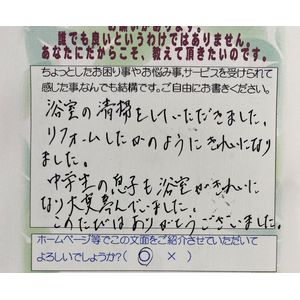 誰でも良いというわけではありません。
あなたにだからこそ、教えて頂きたいのです。
ちょっとしたお困り事やお悩み事、サービスを受けられて
感じた事なんでも結構です。ご自由にお書きください。
浴室の清掃をしていただきました。
リフォームしたかのようにきれいになり
ました。
中学生の息子も浴室がきれいに
なり大変喜んでいました。
このたびはありがとうございました。
ホームページ等でこの文面をご紹介させていただいて
よろしいでしょうか?( ○ × )